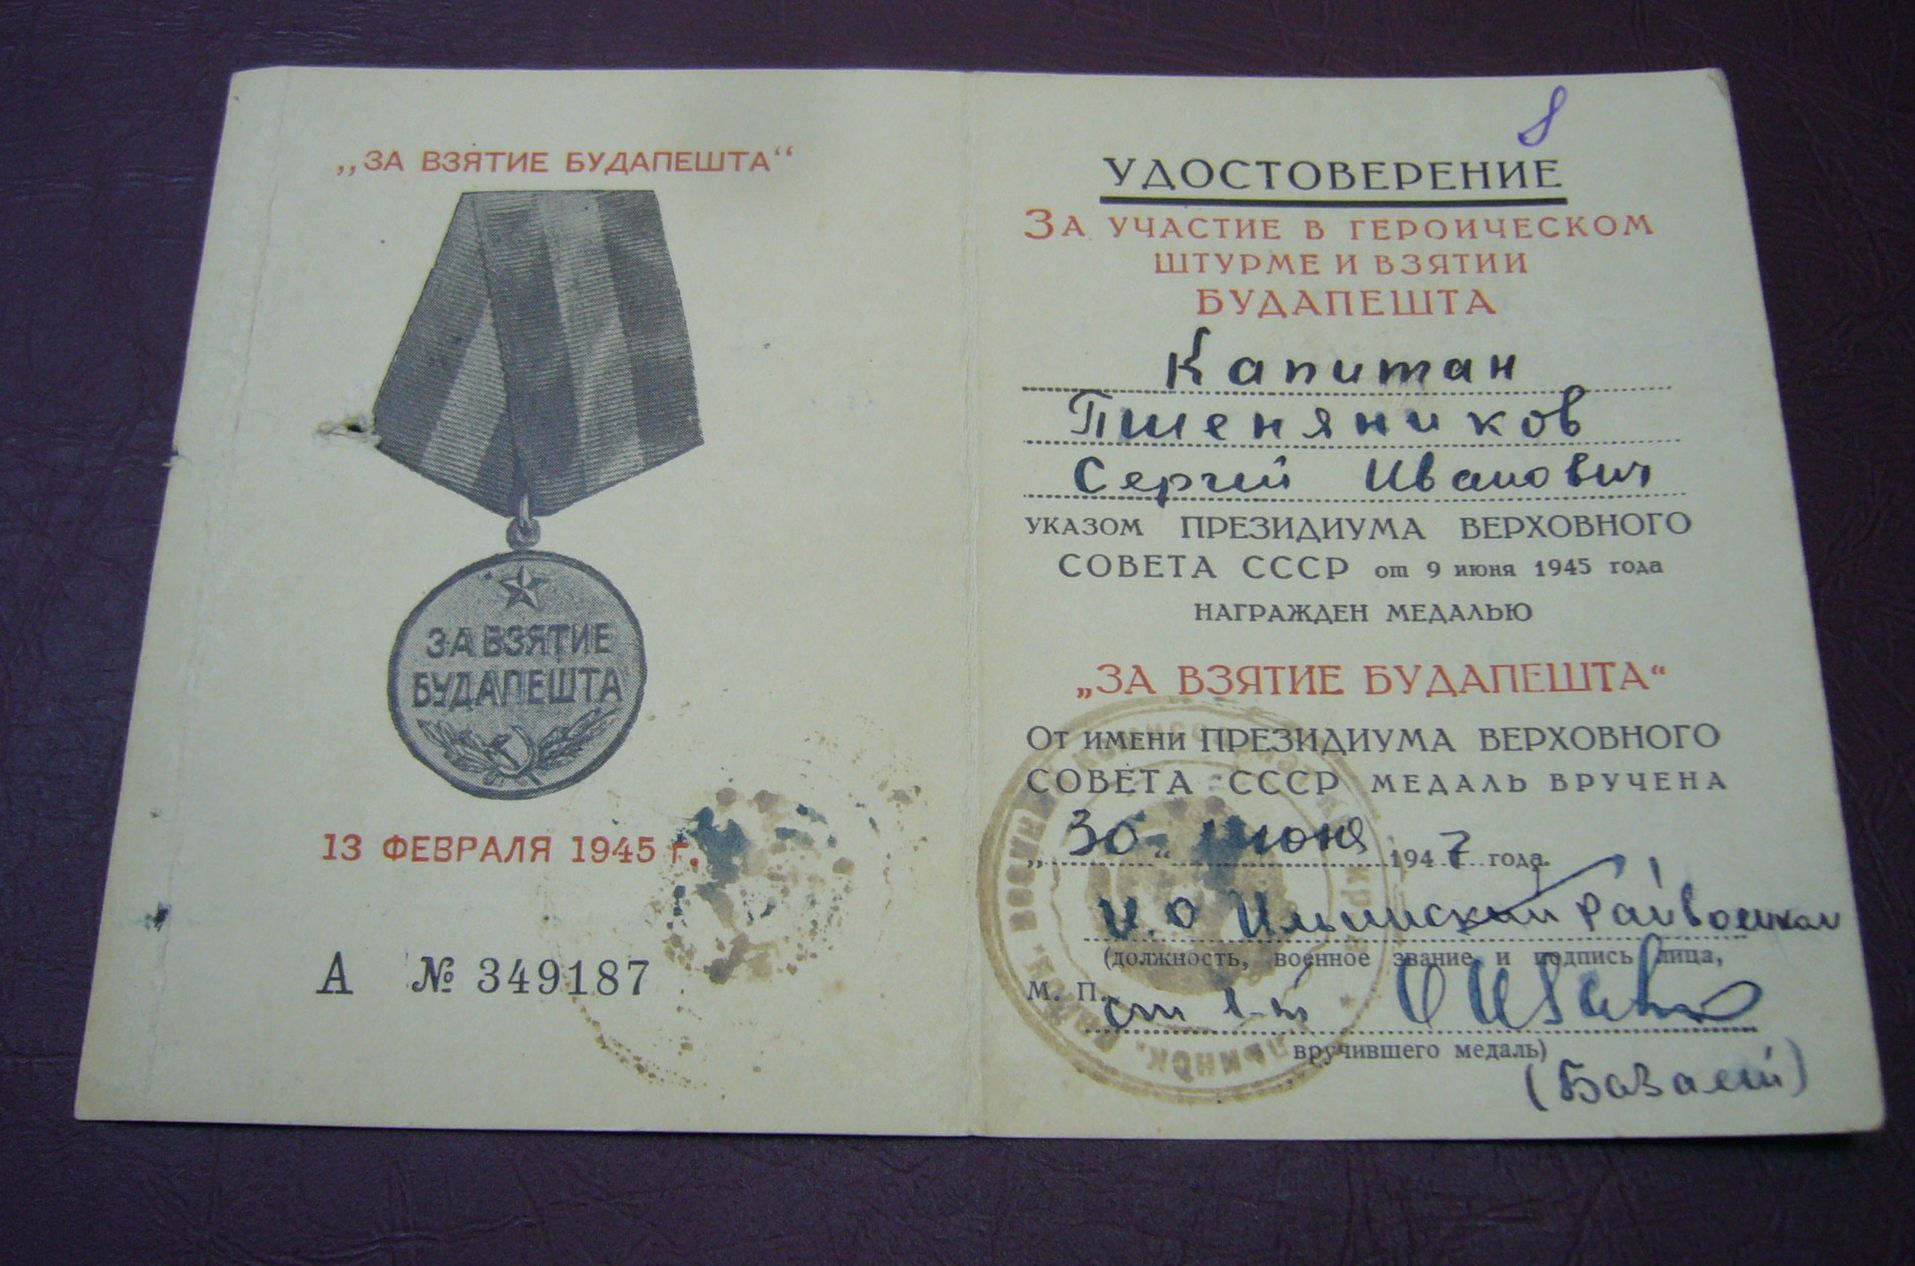 „ЗА ВЗЯТИЕ БУДАПЕШТА“
ЗА ВЗЯТИЕ
БУДАПЕШТА
13 ФЕВРАЛЯ 1945 г.
А № 349187
8
УДОСТОВЕРЕНИЕ
ЗА УЧАСТИЕ В ГЕРОИЧЕСКОМ
ШТУРМЕ И ВЗЯТИИ
БУДАПЕШТА
Капитан
Пшеняников
Сергей Иванович
УКАЗОМ ПРЕЗИДИУМА ВЕРХОВНОГО
СОВЕТА СССР от 9 июня 1945 года
НАГРАЖДЕН МЕДАЛЬЮ
„ЗА ВЗЯТИЕ БУДАПЕШТА“
ОТ ИМЕНИ ПРЕЗИДИУМА ВЕРХОВНОГО
СОВЕТА СССР МЕДАЛЬ ВРУЧЕНА
„30“ июня 1947 года.
И.О Райвоенком
(должность, военное звание и подпись лица,
М. П. ст л-т
вручившего медаль)